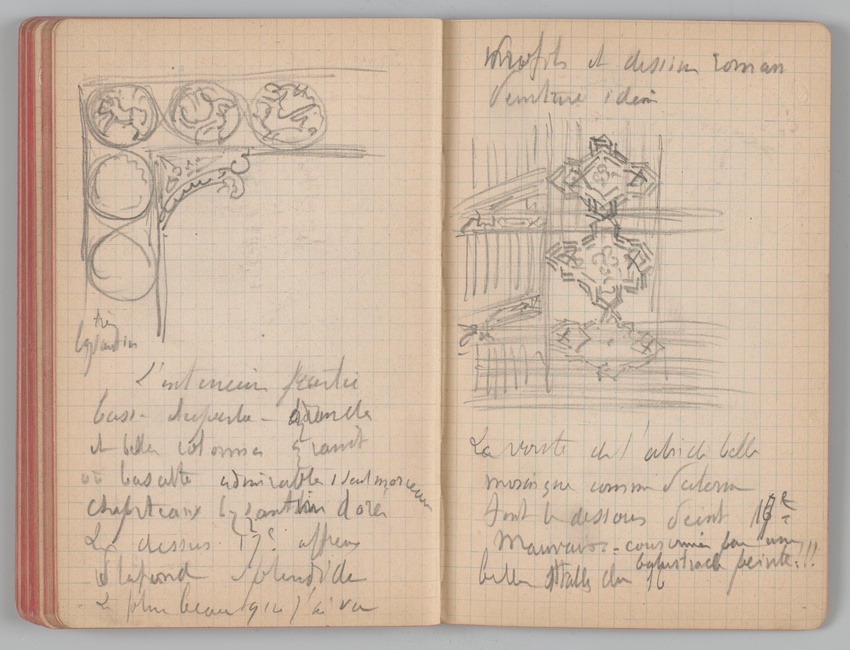 très
byzantin
L'interieur partie
basse superbe - grandes
et belles colonnes granit
ou basalte admirables 1 seul morceau
chapiteaux byzantins dorés
Le dessus 17e affreux
Plafond splendide
Le plus beau que j'ai vu
Profils et dessin roman
Peinture idem
La voute de l'abside belle
mosaïque comme Palerme
Tout le dessous peint 16e
Mauvais - couronnée par une
balustrade peinte!!!
belles Stalles du 16